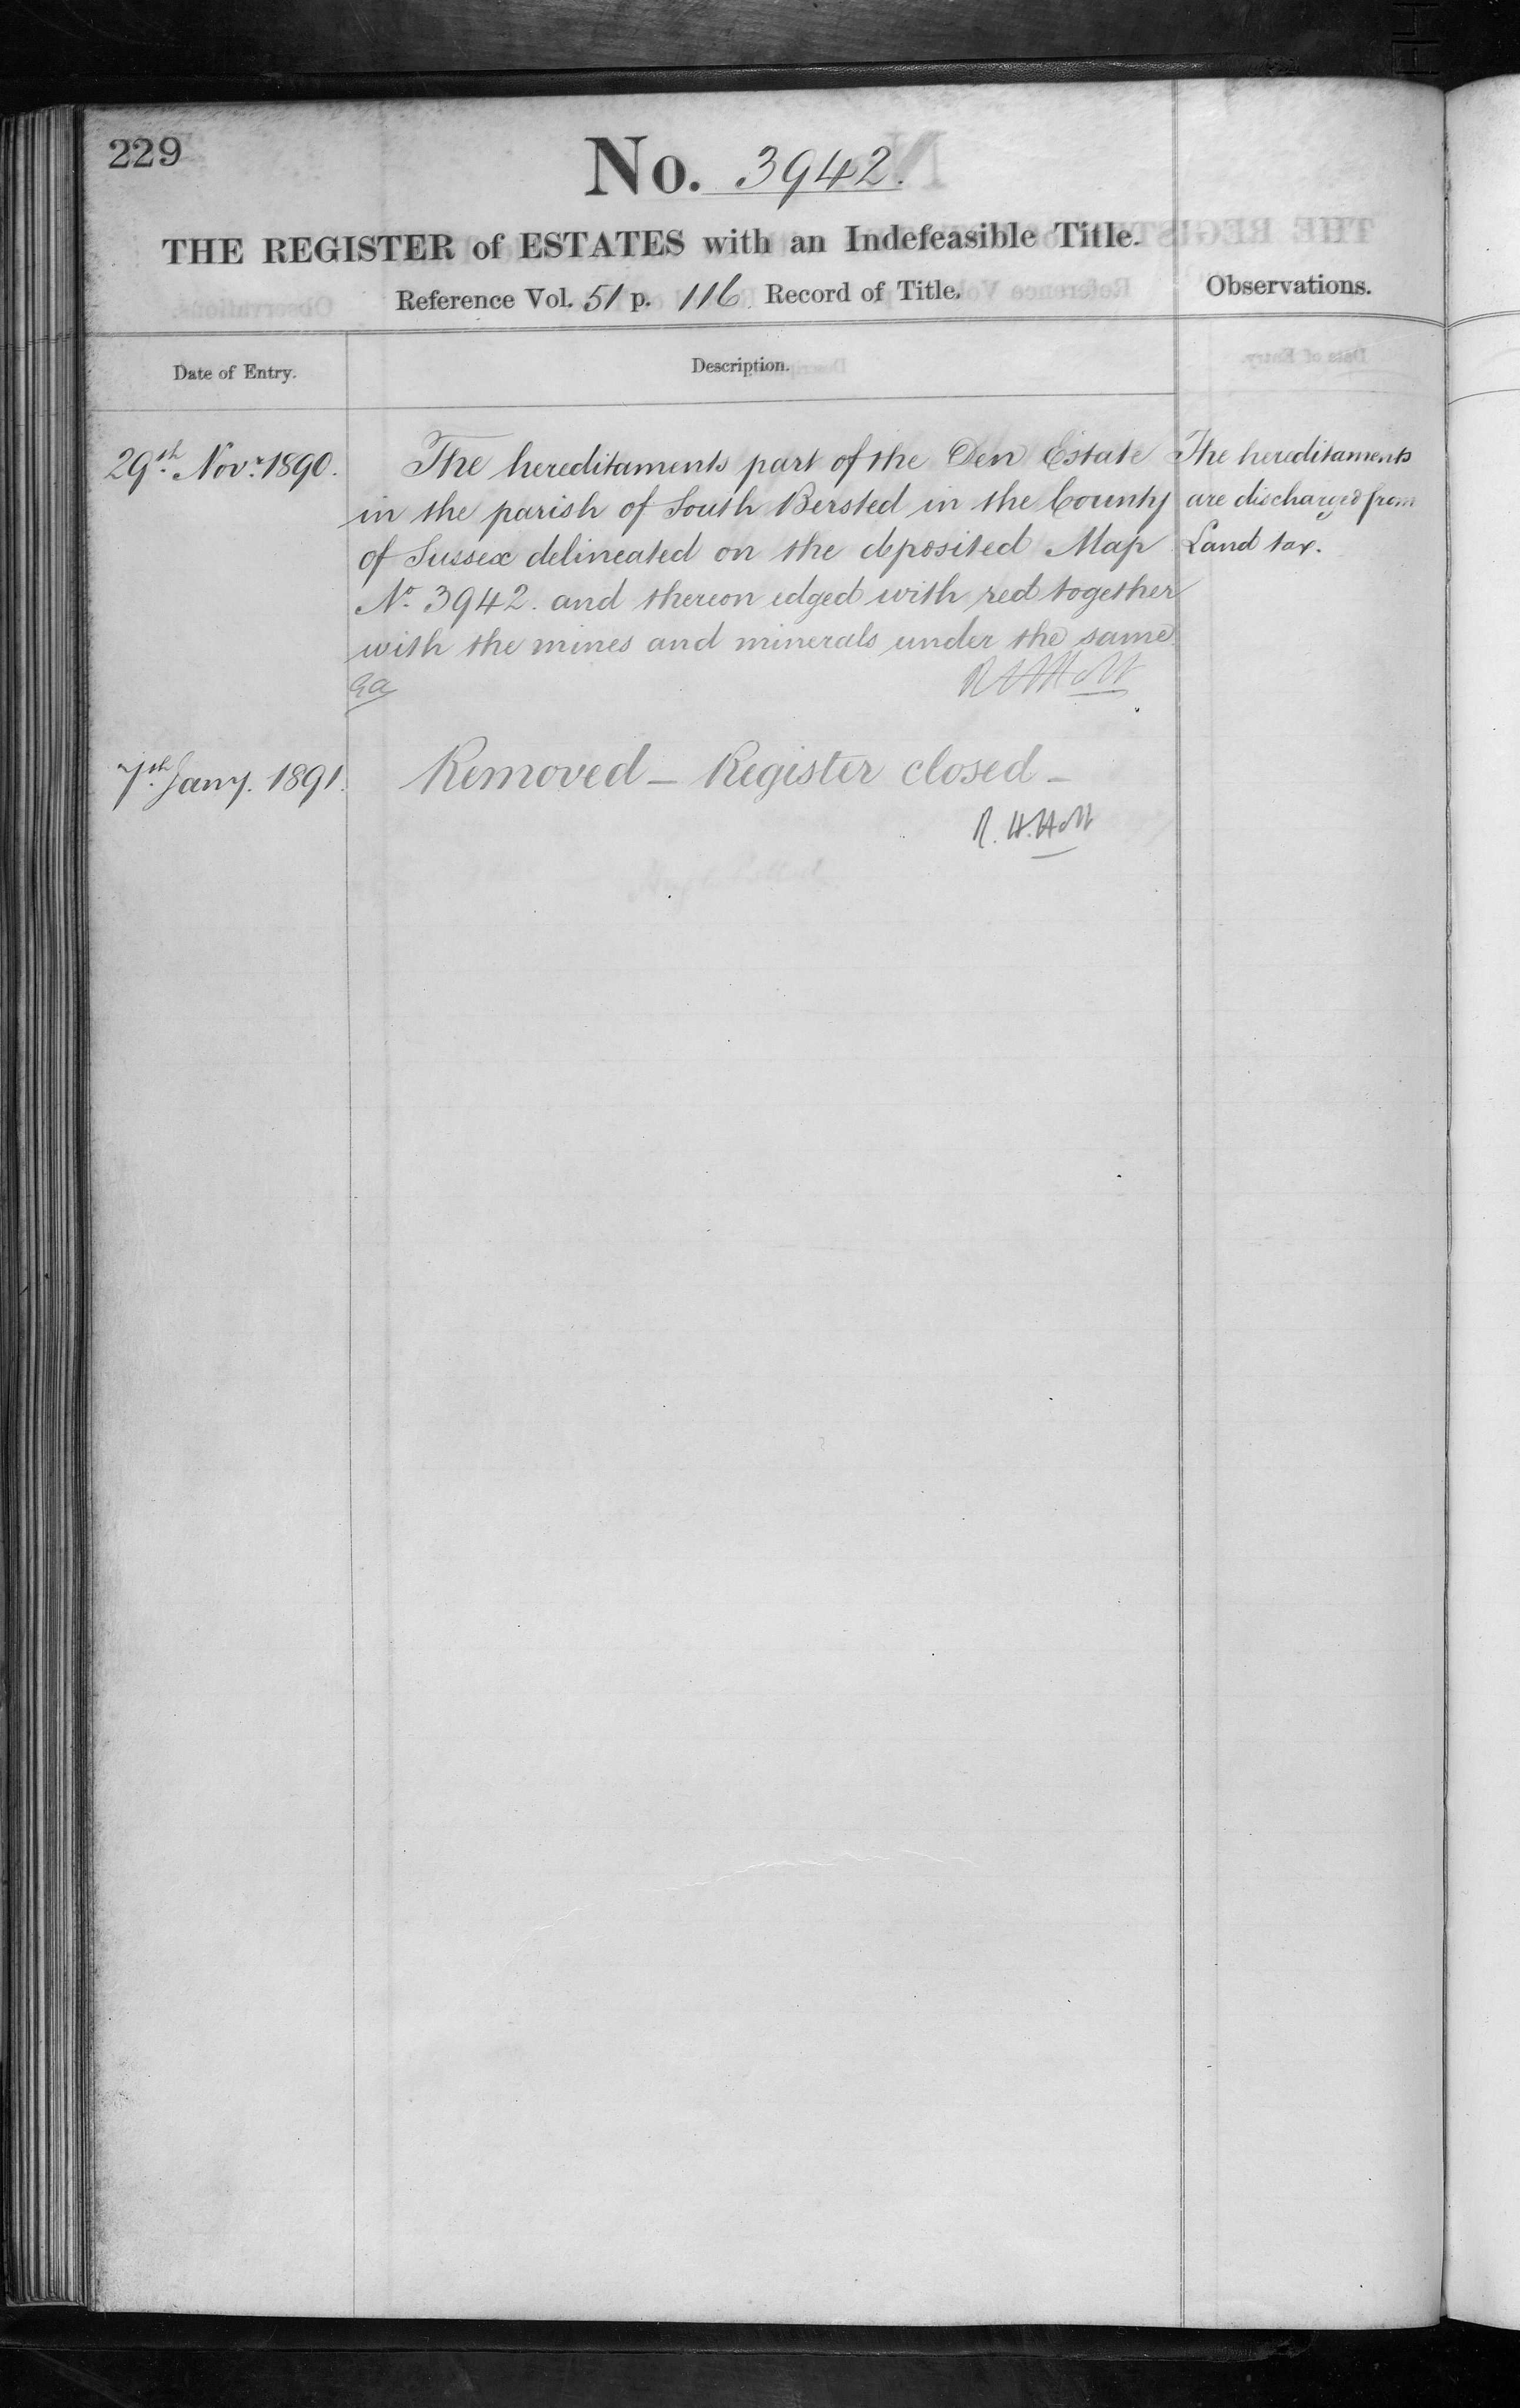 229
No. 3942.
THE REGISTER of ESTATES with an Indefeasible Title.
Reference Vol. 51 p. 116 Record of Title.
Observations.
Date of Entry.
Description.
29th Novr. 1890.
The hereditaments part of the Den Estate
in the parish of South Bersted in the County
of Sussex delineated on the deposited Map
No. 3942. and thereon edged with red together
with the mines and minerals under the same
The hereditaments
are discharged from
Land tax.
7th Jany. 1891.
Removed - Register closed -
R. H. Holt